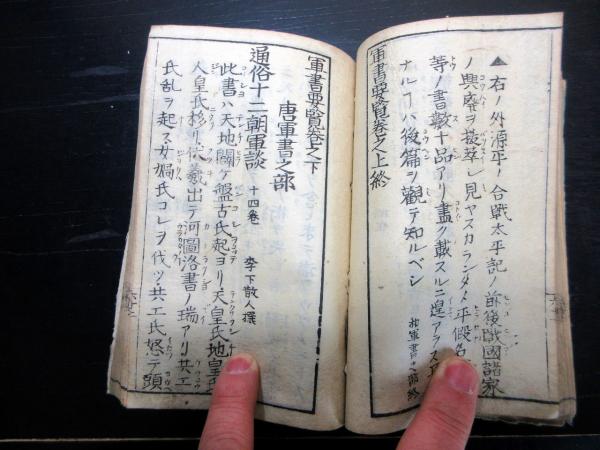 ▲右ノ外源平ノ合戦太平記ノ前後戰國諸家
ノ興廢ヲ抜萃シ見ヤスカランタメ平假名
等ノ書數十品アリ盡ク載スルニ遑アラス
ナルコハ後篇ヲ觀テ知ルベシ
和軍書之部終
軍書要覧巻之上終
軍書要覧巻之下
唐軍書之部
通俗十二朝軍談 十四巻 李下散人撰
此書ハ天地闢ケ盤古氏起ヨリ天皇氏地皇氏
人皇氏移リ伏羲出テ河圖洛書ノ瑞アリ共工
氏乱ヲ起ス女媧氏コレヲ伐ツ共工氏怒テ頭